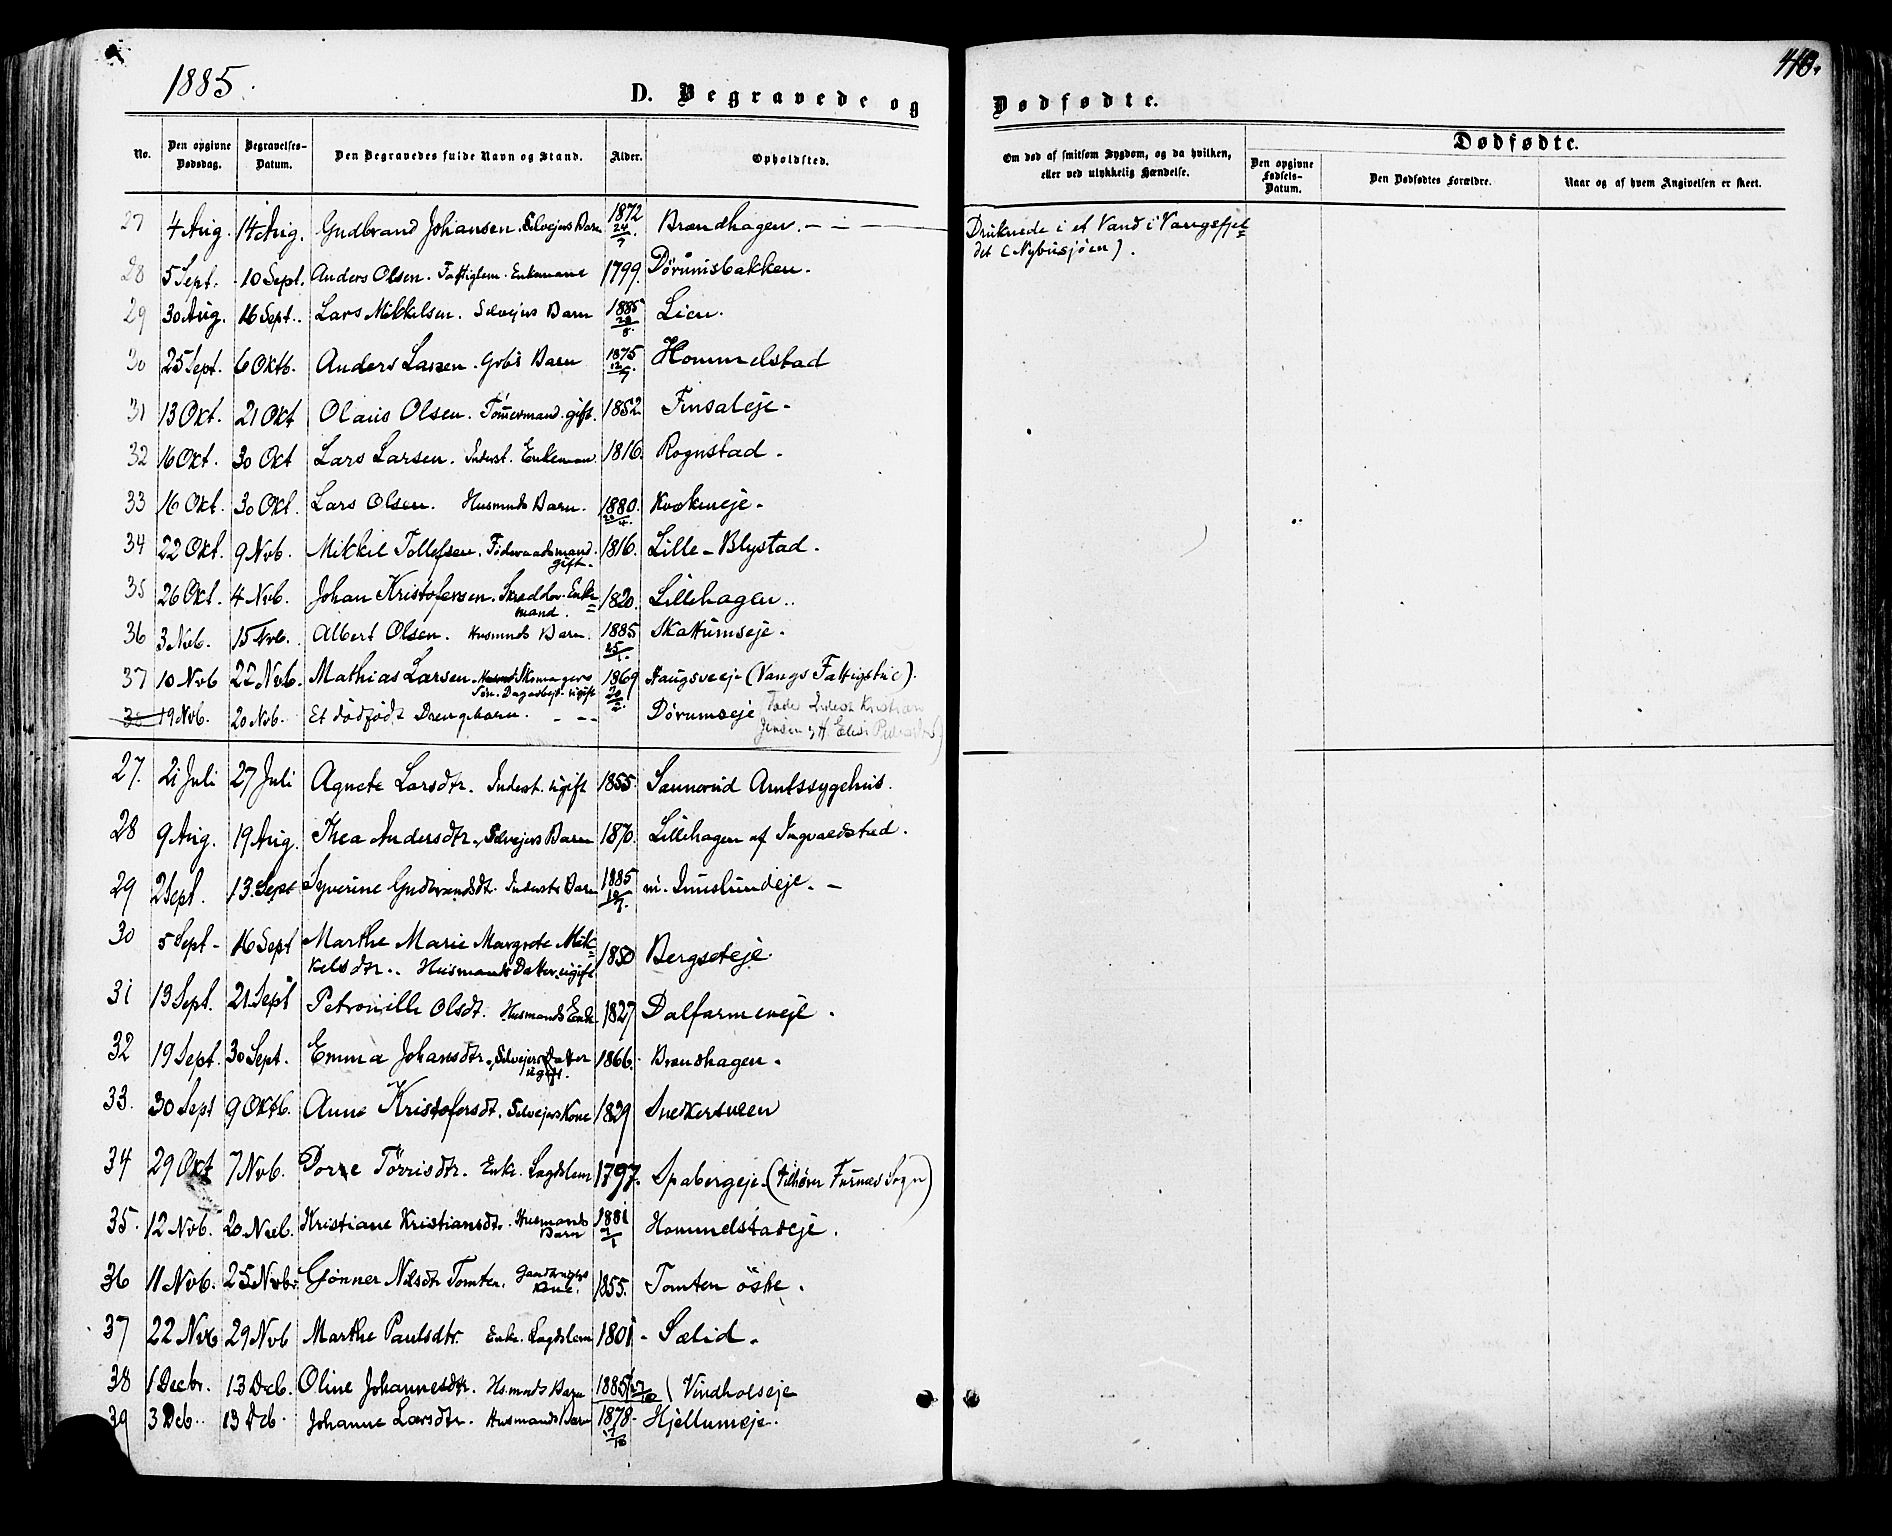 1885.
D. Begravede og
Dødfødte.
410.
No.
Den opgivne Dødsdag.
Begravelses-Datum.
Den Begravedes fulde Navn og Stand.
Alder.
Opholdsted.
Om død af smitsom Sygdom, og da hvilken, eller ved ulykkelig Hændelse.
Dødfødte.
Den opgivne Fødsels-Datum.
Den Dødfødtes Forældre.
Naar og af hvem Angivelsen er skeet.
27 4 Aug. 14 Aug. Gudbrand Johansen. Selvejers Barn 1872 24/7 Brændhagen. Druknede i et Vand i Vangsfjel=
det (Nybusjøen).
28 5 Sept. 10 Sept. Anders Olsen. Fattiglem. Enkemand 1799. Dörumsbakken.
29 30 Aug. 16 Sept. Lars Mikkelsen. Selvejers Barn 1885 Lien.
30 25 Sept. 6 Oktb. Anders Larsen. Gbr's Barn 1875 12/7 Hommelstad
31 13 Okt. 21 Okt Olaus Olsen. Tömmermand. gift. 1852 Finsaleje -
32 16 Okt. 30 Okt Lars Larsen. Inderst. Enkeman 1816. Rognstad.
33 16 Okt. 30 Okt. Lars Olsen. Husmands Barn. 1880. Kvakeneje -
34 22 Okt. 9 Nvb. Mikkel Tollefsen. Föderaadsmand. gift. 1816. Lille-Blystad.
35 26 Okt. 4 Nvb. Johan Kristofersen. Skrædder. Enke=
mand. 1820. Lillehagen..
36 3 Nvb. 15 Nvb. Albert Olsen. Husmnds Barn. 1885 25/1 Skattumseje.
37 10 Nvb 22 Nvb. Mathias Larsen. Skomagers
Sön. Dagarbejd. ugift 1869 20/2 Haugsveeje (Vangs Fattigdstric).
38 19 Nvb. 20 Nvb. Et dödfödt Drengebarn. - -- Dörumseje (Fader Inderst Kristian
Jensen og H. Elise Pedersdtr)
27. 21 Juli 27 Juli Agnete Larsdtr. Inderst. ugift 1855. Sannerud Amtssygehus.
28 9 Aug. 19 Aug. Thea Andersdtr. Selvejers Barn 1870. Lillehagen af Ingvaldstad.
29 2 Sept. 13. Sept Syverine Gudbrandsdt. Inderst's Barn 1885 m. Imislundeje. -
30 5 Sept - 16 Sept Marthe Marie Margrete Mik=
kelsdtr. Husmands Datter. ugift 1850 Bergseteje
31 13 Sept. 21 Sept Petronille Olsdt. Husmands Enke 1827 Dalfarmeneje.
32 19 Sept. 30 Sept. Emma Johansdtr. Selvejers Datter
ugift. 1866. Brændhagen.
33. 30 Sept 9 Oktb. Anne Kristofersdt. Selvejers Kone 1829 Snekersveen
34 29 Okt 7 Nvb. Dorte Törrisdtr. Enke. Lægdslem 1797. Spabergeje. (tilhörer Furnæs Sogn)
35. 12 Nvb. 20 Nvb. Kristiane Kristiansdt. Husmands
Barn 1881 Hommelstadeje.
36 11 Nvb. 25 Nvbr. Gönner Nilsdtr Tomten. Gaardbrugers
Kone. 1855. Tomten östre.
37 22 Nvb 29 Nvb Marthe Paulsdtr. Enke. Lægdslem 1801 - Sælid.
38 1 Decbr. 13 Dcb. Oline Johannesdtr. Husmnds Barn 1885 27/10 Vindholseje
39 3 Dcb. 13 Dcb. Johanne Larsdtr. Husmands Barn 1878 Hjellumeje.